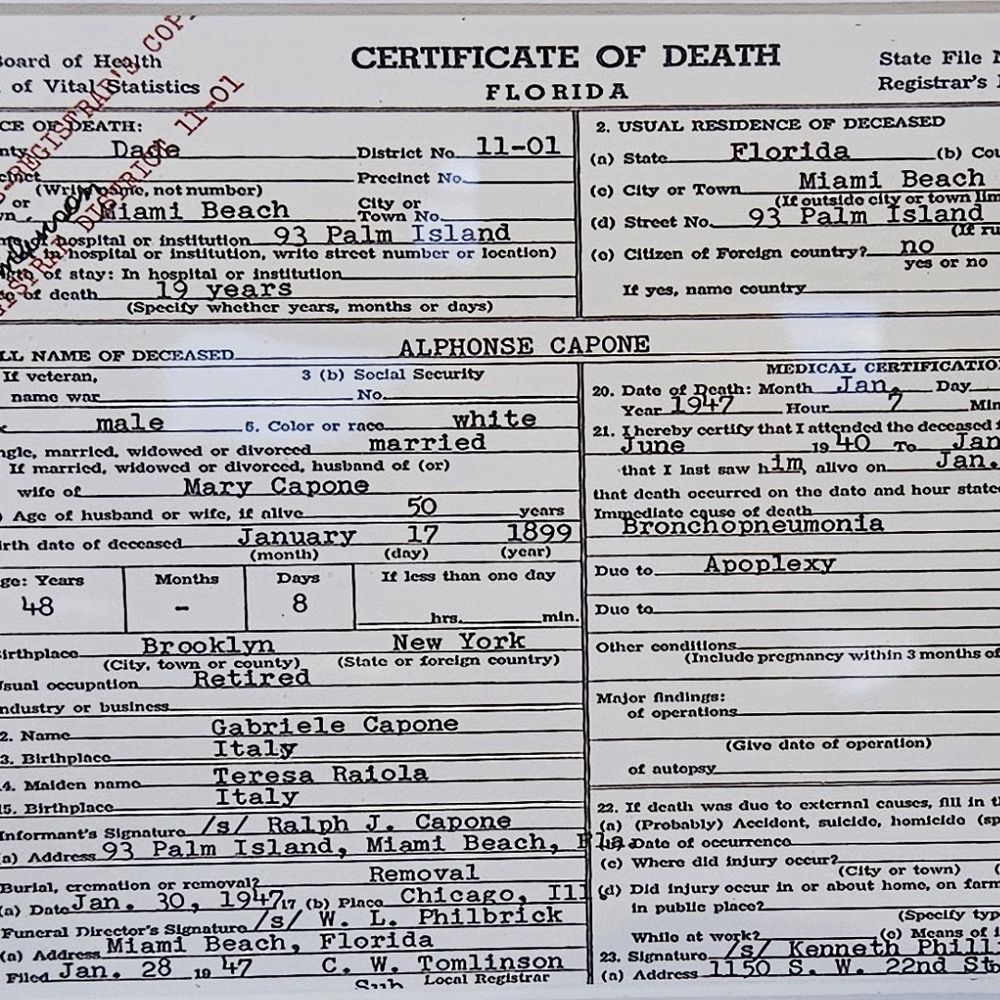 Board of Health
of Vital Statistics
REGISTRAR'S COPY
REGISTRAR DISTRICT 11-01
CERTIFICATE OF DEATH
FLORIDA
State File
Registrar's
CE OF DEATH:
nty Dade District No. 11-01
Precinct No.
(Write name, not number)
or Miami Beach City or Town No.
hospital or institution 93 Palm Island
hospital or institution, write street number or location)
of stay: In hospital or institution
of death 19 years
(Specify whether years, months or days)
2. USUAL RESIDENCE OF DECEASED
(a) State Florida (b) Cou
(c) City or Town Miami Beach
(If outside city or town lim
(d) Street No. 93 Palm Island
(If ru
(e) Citizen of Foreign country? no
yes or no
If yes, name country
LL NAME OF DECEASED ALPHONSE CAPONE
If veteran, name war
3 (b) Social Security No.
male 5. Color or race white
ngle, married, widowed or divorced married
If married, widowed or divorced, husband of (or)
wife of Mary Capone
Age of husband or wife, if alive 50 years
irth date of deceased January 17 1899
(month) (day) (year)
ge: Years Months Days If less than one day
48 - 8 hrs. min.
irthplace Brooklyn New York
(City, town or county) (State or foreign country)
sual occupation Retired
ndustry or business
2. Name Gabriele Capone
3. Birthplace Italy
4. Maiden name Teresa Raiola
5. Birthplace Italy
Informant's Signature /s/ Ralph J. Capone
(a) Address 93 Palm Island, Miami Beach, Fla
Burial, cremation or removal? Removal
(a) Date Jan. 30, 1947 17 (b) Place Chicago, Ill
Funeral Director's Signature /s/ W. L. Philbrick
(a) Address Miami Beach, Florida
Filed Jan. 28 1947 C. W. Tomlinson
Sub Local Registrar
MEDICAL CERTIFICATIO
20. Date of Death: Month Jan. Day
Year 1947 Hour 7 Min
21. I hereby certify that I attended the deceased f
June 1940 To Jan
that I last saw him alive on Jan.
that death occurred on the date and hour state
Immediate cause of death
Bronchopneumonia
Due to Apoplexy
Due to
Other conditions
(Include pregnancy within 3 months of
Major findings:
of operations
(Give date of operation)
of autopsy
22. If death was due to external causes, fill in th
(a) (Probably) Accident, suicide, homicide (sp
Date of occurrence
(c) Where did injury occur?
(City or town) (
(d) Did injury occur in or about home, on farm
in public place?
(Specify typ
While at work? (e) Means of i
23. Signature /s/ Kenneth Philli
(a) Address 1150 S. W. 22nd St